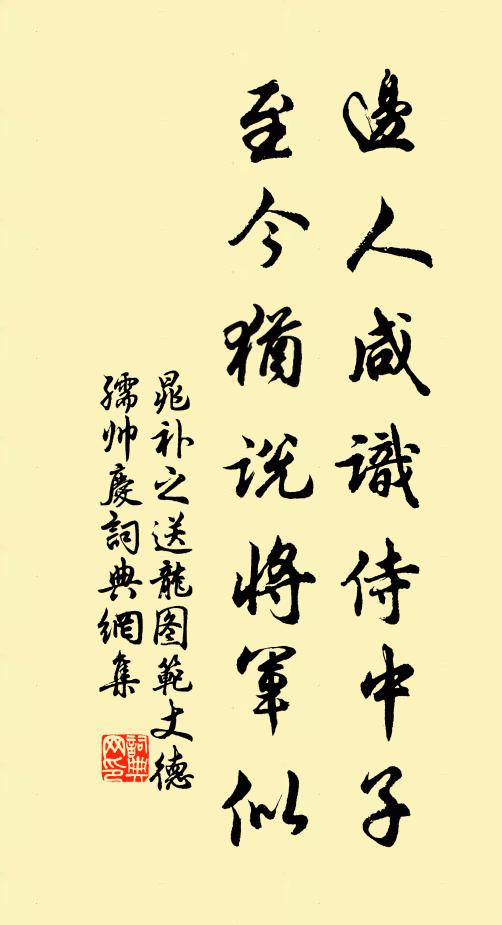 邊人咸識侍中子
至今猶說將軍似
晁补之送龍图範丈德
孺帅慶詞典網集
詞典
网印